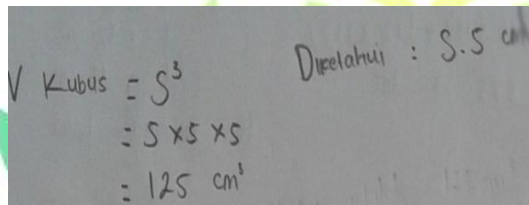 V Kubus = S³
= 5 × 5 × 5
= 125 cm³
Diketahui : S. 5 cm